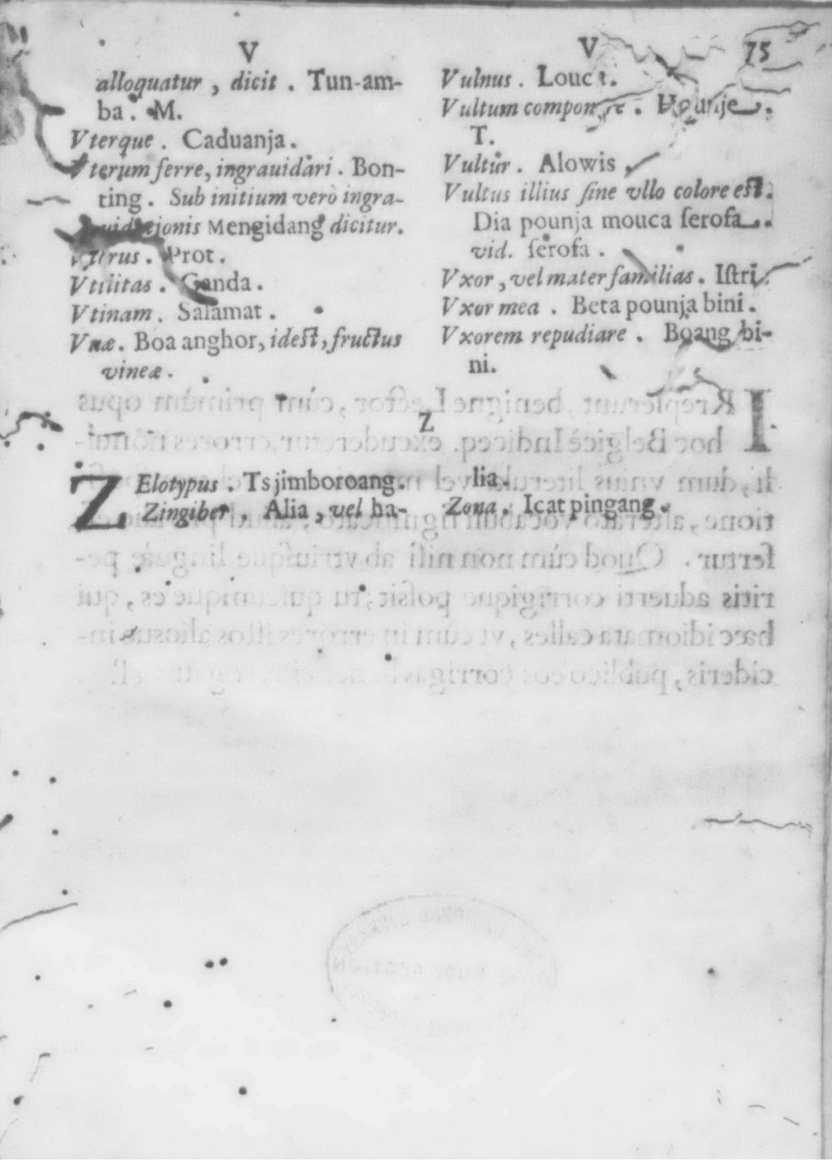 V
alloquatur, dicit. Tun-am-
ba. M.
Vterque. Caduanja.
Vterum ferre, ingrauidari. Bon-
ting. Sub initium verò ingra-
Mengidang dicitur.
Vterus. Prot.
Vtilitas. Ganda.
Vtinam. Salamat.
Vuæ. Boa anghor, idest, fructus
vineæ.
V 75
Vulnus. Louca.
Vultum componere. Pounje
T.
Vultur. Alowis
Vultus illius ſine vllo colore eſt.
Dia pounja mouca ſeroſa.
vid. ſeroſa.
Vxor, vel mater familias. Iſtri.
Vxor mea. Beta pounja bini.
Vxorem repudiare. Boang bi-
ni.
Z
ZElotypus. Tsjimboroang.
Zingiber. Alia, vel ha-
lia.
Zona. Icat pingang.